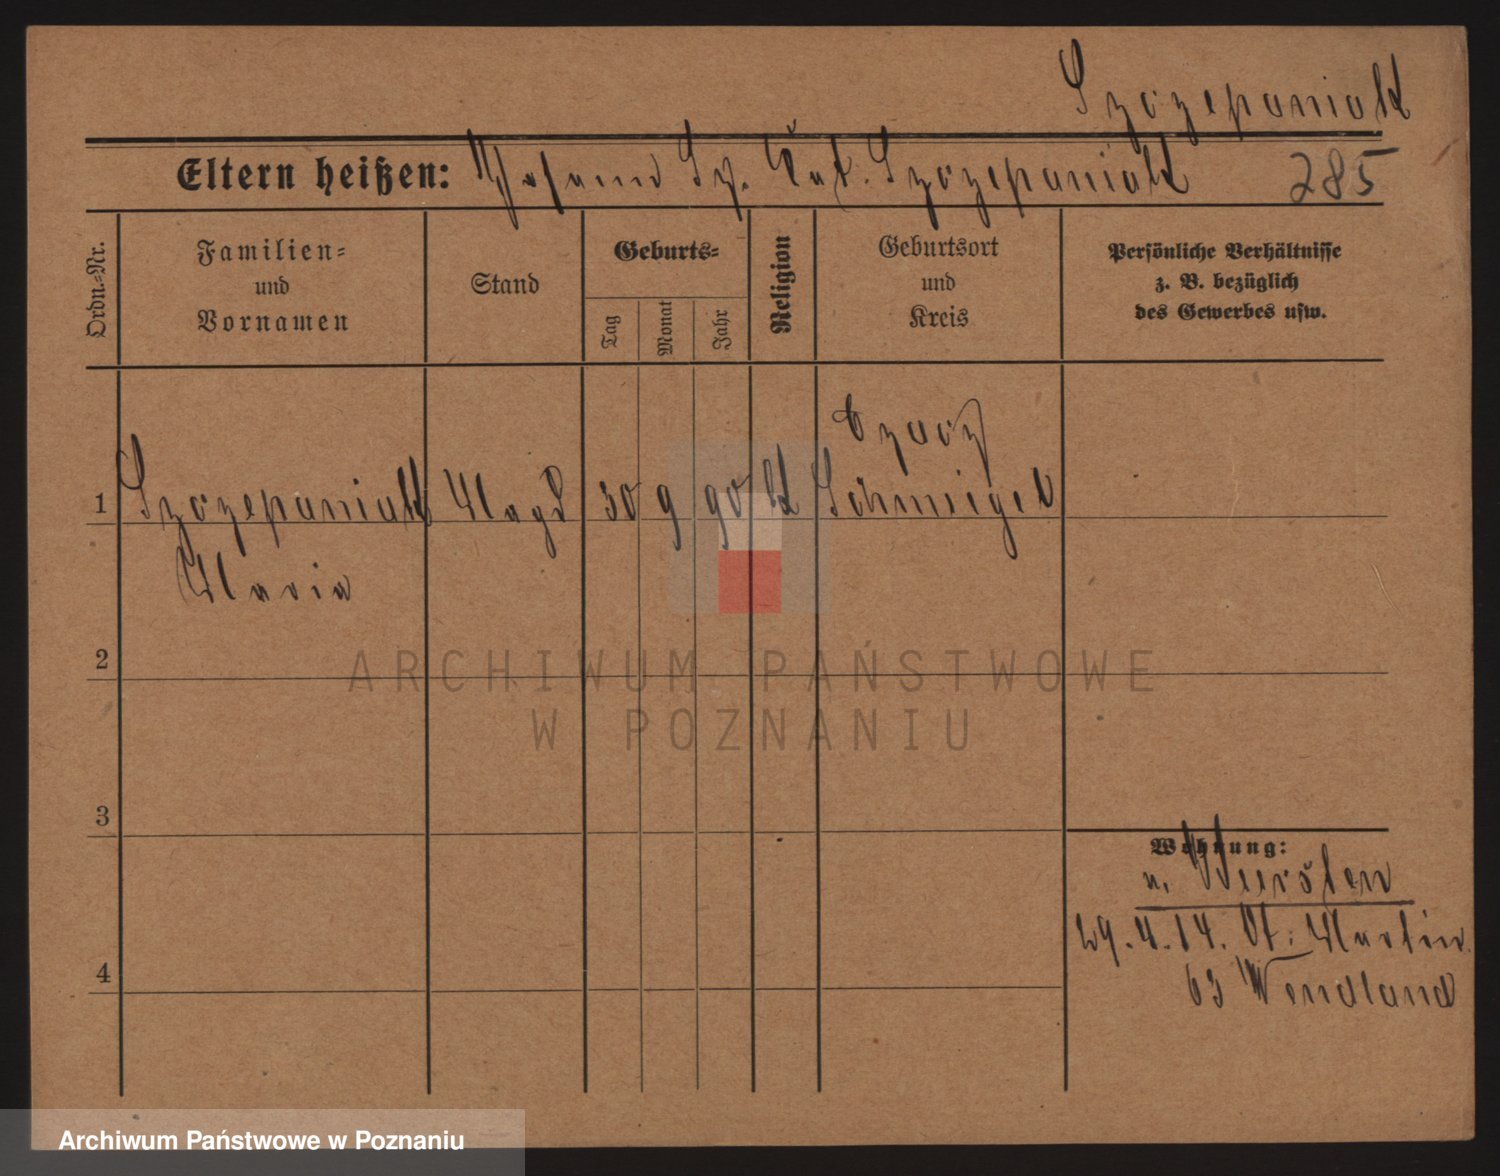 Szczepaniak
Eltern heißen: Sz. Kat. Szczepaniak 285
Ordn.-Nr.
Familien-
und
Vornamen
Stand
Geburts-
Tag
Monat
Jahr
Religion
Geburtsort
und
Kreis
Persönliche Verhältnisse
z. B. bezüglich
des Gewerbes usw.
Czacz
1 Szczepaniak Magd 30 9 90 K Schmiegel
Maria
2
3
4
Wohnung:
n.
29.4.14. St. Martin
63 Wendland
ARCHIWUM PAŃSTWOWE
W POZNANIU
Archiwum Państwowe w Poznaniu